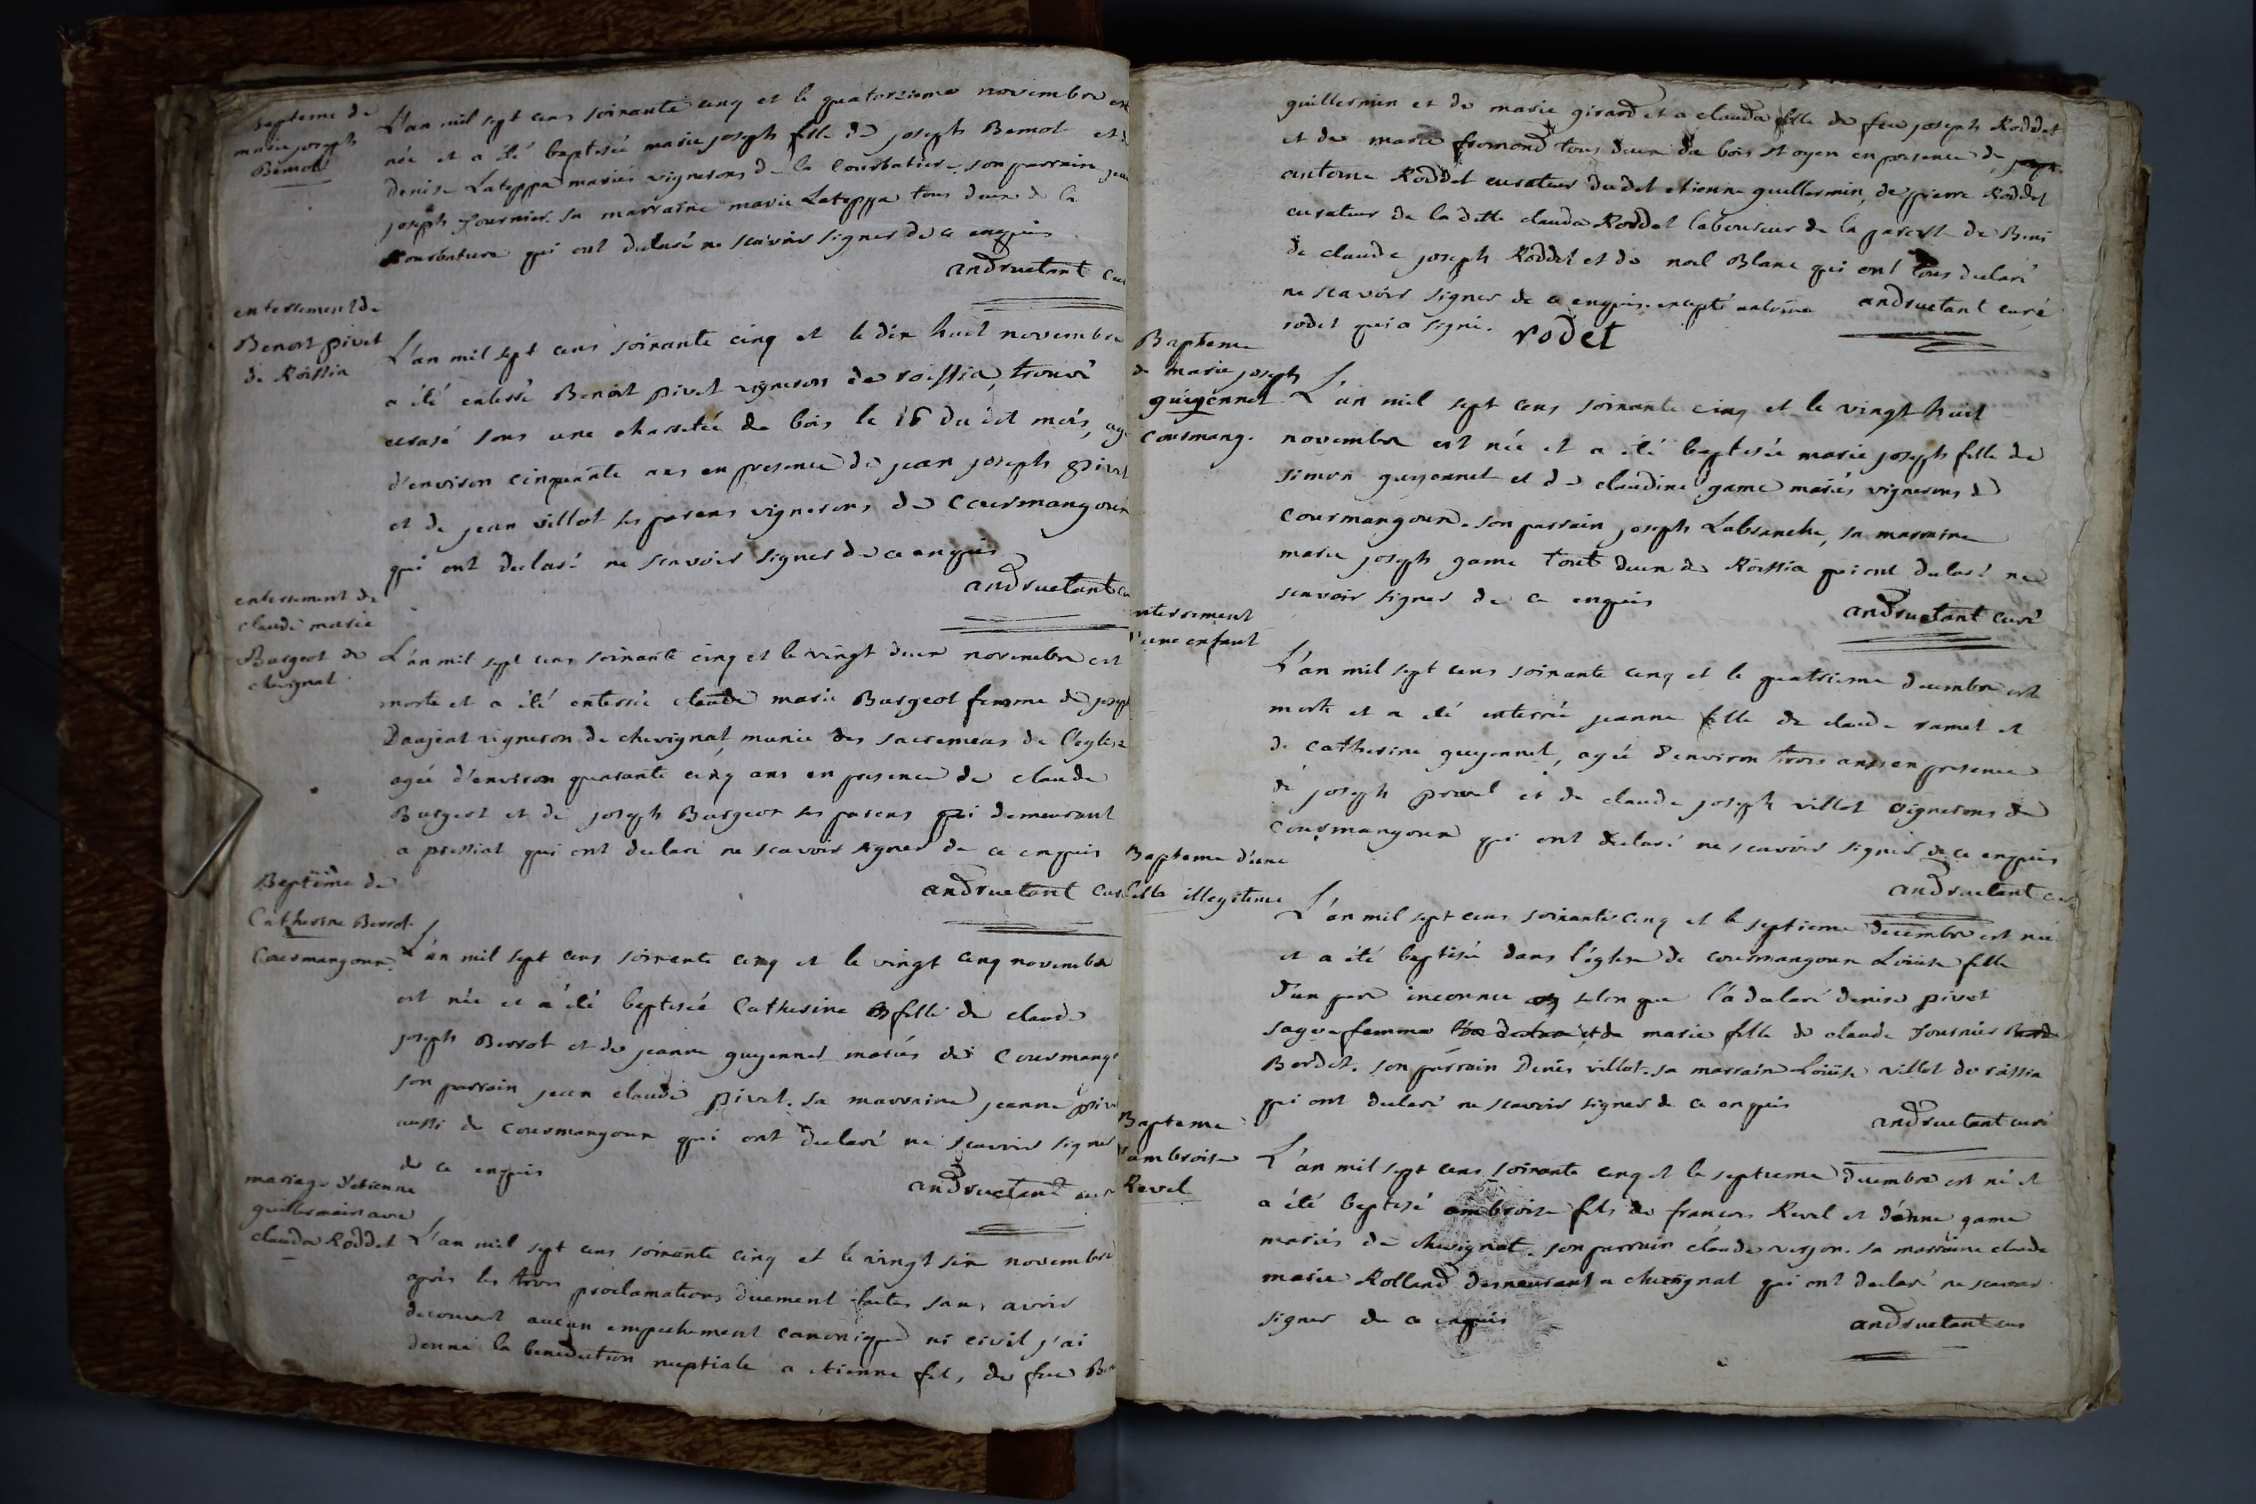 bapteme de
marie joseph
Bemot
L'an mil sept cens soixante cinq et le quatorzieme novembre est
née et a été baptisée marie joseph fille de joseph Bemot et de
denise Lateppa mariés vignerons de la Courbature, son parrain
joseph fournier. sa marraine marie Lateppa tous deux de la
Courbature qui ont declaré ne scavoir signer de ce enquis
andruetant curé
enterrement de
Benoit pivet
de Roissia
L'an mil sept cens soixante cinq et le dix huit novembre
a été enterré Benoit pivet vigneron de roissia, trouvé
ecrasé sous une charretée de bois le 16 dudit mois, agé
d'environ cinquante ans en presence de jean joseph pivet
et de jean villot ses parens vignerons de Courmangoux
qui ont declaré ne scavoir signer de ce enquis
andruetant
enterrement de
claude marie
Burgeot de
chevignat
L'an mil sept cens soixante cinq et le vingt deux novembre est
morte et a été enterrée claude marie Burgeot femme de joseph
Daujeat vigneron de chevignat munie des sacremens de l'eglise
agée d'environ quarante cinq ans en presence de claude
Burgeot et de joseph Burgeot ses parens qui demeurant
a pressiat qui ont declaré ne scavoir signer de ce enquis
andruetant curé
Baptême de
Catherine Berrot
Courmangoux.
L'an mil sept cens soixante cinq et le vingt cinq novembre
est née et a été baptisée Catherine fille de claude
joseph Berrot et de jeanne guyennet mariés de Courmangoux
son parrain jean claude pivet. sa marraine jeanne pivet
aussi de Courmangoux qui ont declaré ne scavoir signer
de ce enquis
andruetant curé
mariage d'etienne
guillermin avec
claudα Roddet
L'an mil sept cens soixante cinq et le vingt six novembre
après les trois proclamations duement faites sans avoir
decouvert aucun empechement canonique ni civil j'ai
donné la benediction nuptiale a etienne fils de feu
guillermin et de marie girard et a claudα fille de feu joseph Roddet
et de marie fromond tous deux de bois st oyen en presence de
antoine Roddet curateur dudit etienne guillermin, de pierre Roddet
curateur de la ditte claudα Roddet laboureur de la paroisse de Beni
de claude joseph Roddet et de noel Blanc qui ont tous declaré
ne scavoir signer de ce enquis, excepté antoine
andruetant curé
rodet qui a signé. rodet
Bapteme
de marie joseph
guiyennet
Courmang.
L'an mil sept cens soixante cinq et le vingt huit
novembre est née et a été baptisée marie joseph fille de
simon guyennet et de claudine game mariés vignerons de
Courmangoux. son parrain joseph Labranche, sa marraine
marie joseph game tout deux de Roissia qui ont declaré ne
scavoir signer de ce enquis
andruetant curé
enterrement
d'une enfant
L'an mil sept cens soixante cinq et le quatrieme decembre est
morte et a été enterrée jeanne fille de claude ramel et
de Catherine guyennet, agée d'environ trois ans en presence
de joseph pravel et de claude joseph villot vignerons de
Courmangoux qui ont declaré ne scavoir signer de ce enquis
andruetant curé
Bapteme d'une
fille illegitime
L'an mil sept cens soixante cinq et le septieme decembre est née
et a été baptisée dans l'église de courmangoux Loüise fille
d'un pere inconnu selon que l'a declaré denise pivet
sage femme et de marie fille de claude fournier
Berdet. son parrain Denis villot. sa marraine Loüise villot de rossia
qui ont declaré ne scavoir signer de ce enquis
andruetant curé
Bapteme
d'ambroise
Revel
L'an mil sept cens soixante cinq et le septieme decembre est né et
a été baptisé ambroise fils de françois Revel et d'anne game
mariés de chevignat. son parrain claude verjon. sa marraine claude
marie Rolland demeurant a chevignat qui ont declaré ne scavoir
signer de ce enquis
andruetant curé